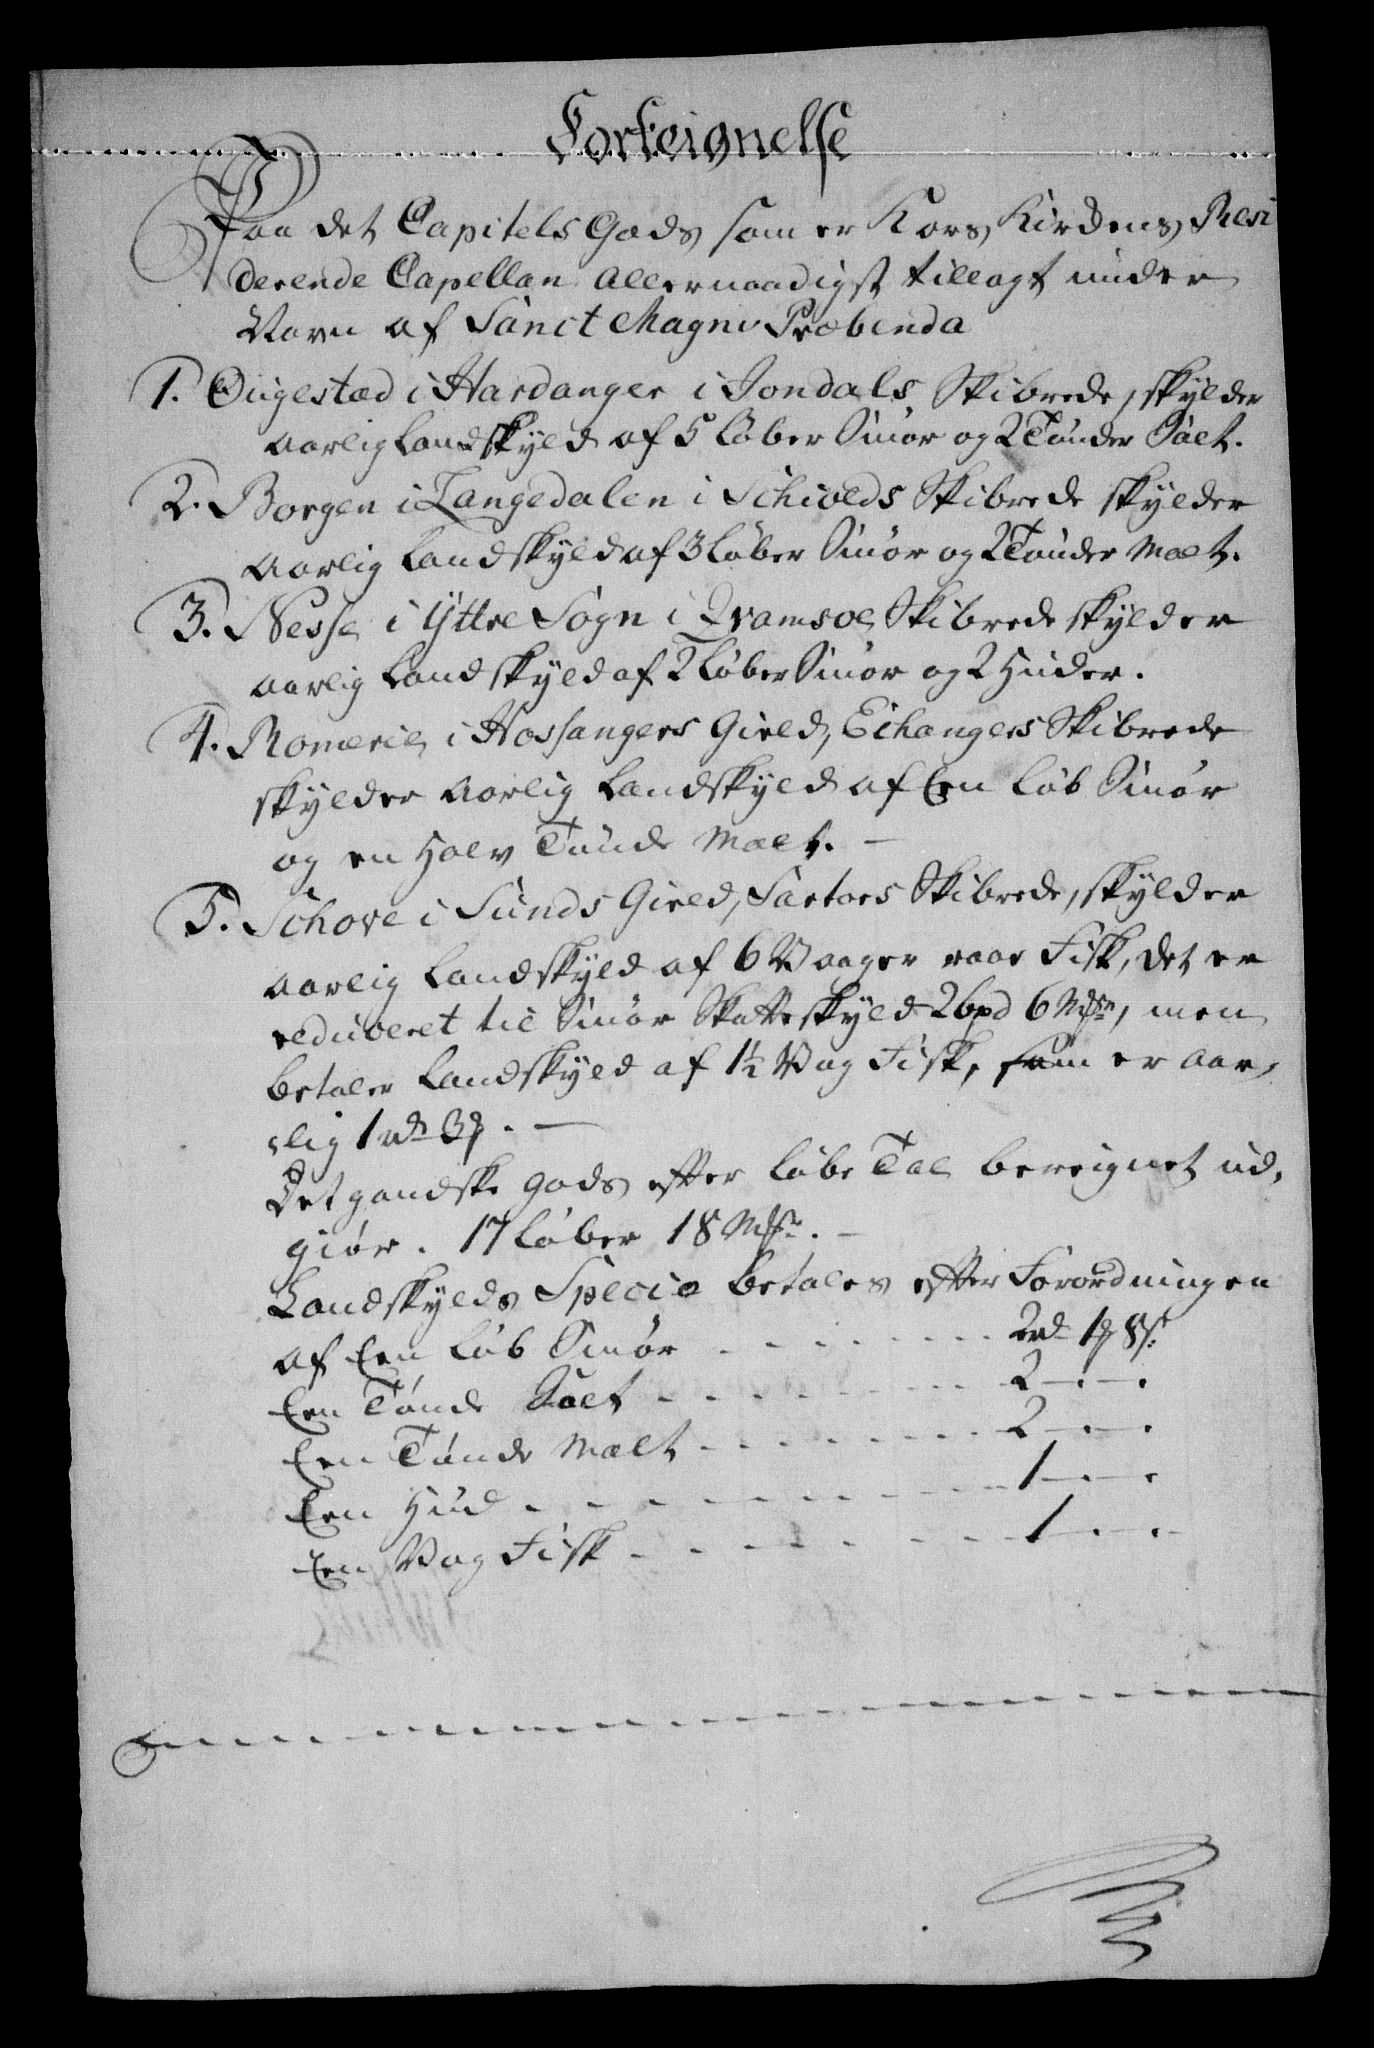 Forteignelse
Paa det Capitels Gods som er Kors Kirckens Resi
derende Capellan Allernaadigst tillagt under
Navn af Sanct Magni Præbenda
1. Ougestæd i Hardanger i Jondals Skibrede, skylder
aarlig Landskyld af 5 Løber Smør og 2 Tønder Salt.
2. Borgen i Langedalen i Schiolds Skibrede skylder
aarlig Landskyld af 3 Løber Smør og 2 Tønder Malt.
3. Nesse i Yttre Sogn i Qvamsoe Skibrede skylder
aarlig Landskyld af 2 Løber Smør og 2 Huder.
4. Romerie i Hossangers Gield, Echangers Skibrede
skylder aarlig Landskyld af Een Løb Smør
og en halv Tønde Malt. —
5. Schore i Sunds Gield, Sartoes Skibrede, skylder
aarlig Landskyld af 6 Vaager raae Fisk, det er
reduceret til Smør Skatteskyld 2 bpd 6 mrk, men
betaler Landskyld af 1½ Vog Fisk, som er aar-
lig 1 rd 3 ƶ. —
Det gandske Gods efter Løbe Tal bereignet ud-
giør. 17 Løber 18 mrk. —
Landskylds Specie betales efter Forordningen
af Een Løb Smør . . . . . . 2 rd 1 ƶ 8 s:
Een Tønde Salt . . . . . . 2 — . — .
Een Tønde Malt . . . . . . 2 — . — .
Een Hud . . . . . . . . 1 — . — .
Een Vog Fisk . . . . . . 1 — . — . —